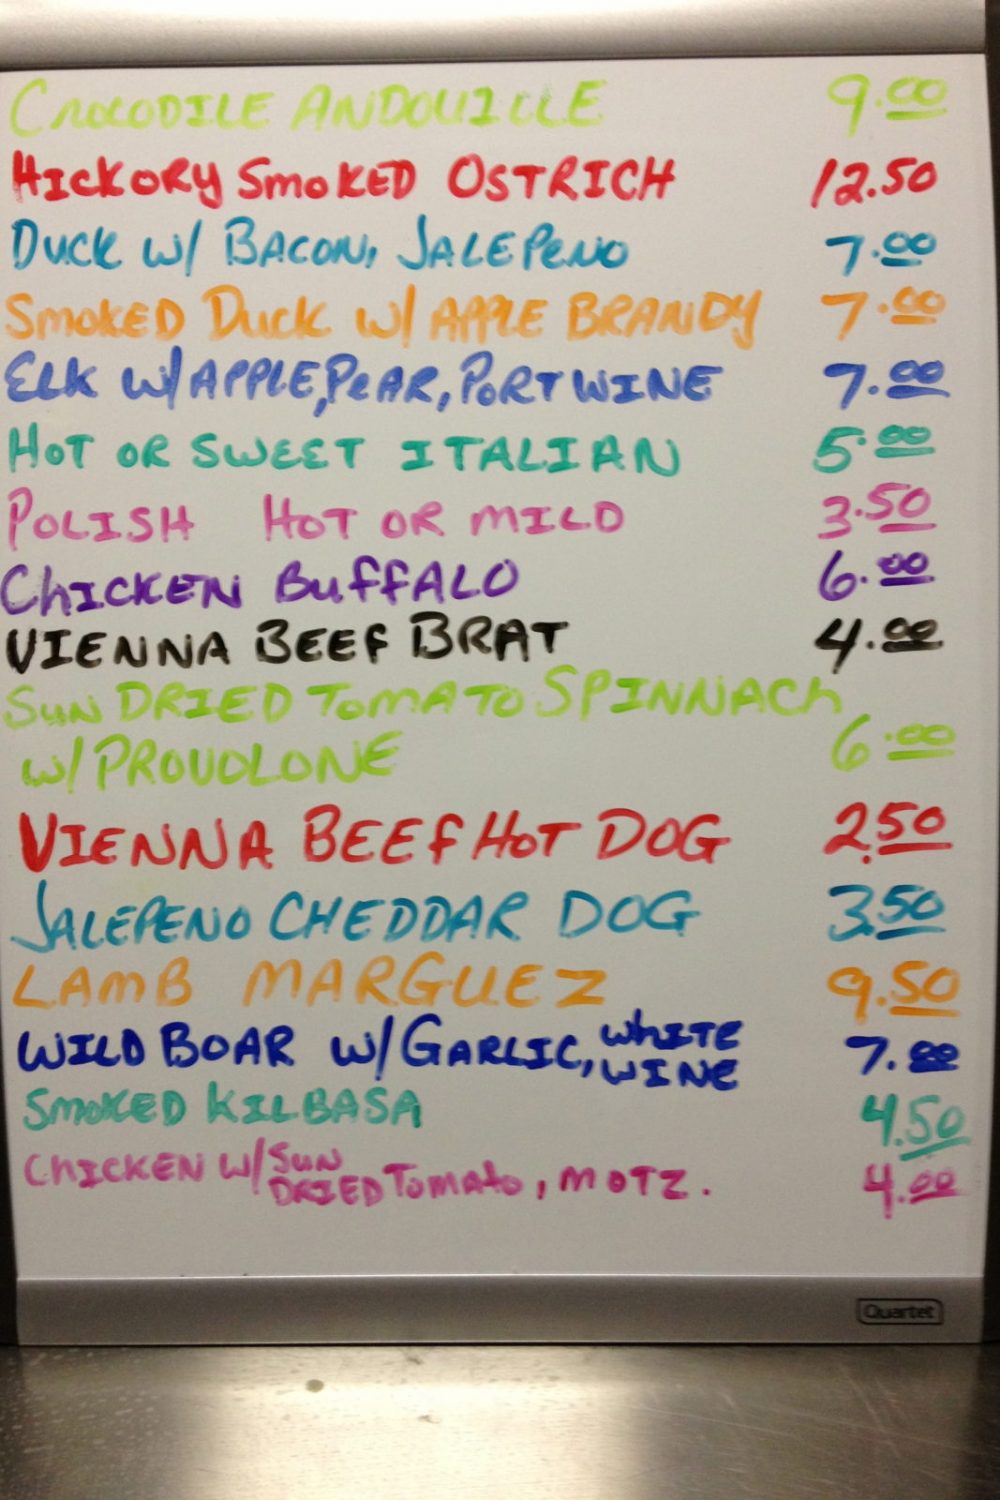 CROCODILE ANDOUILLE 9.00
HICKORY SMOKED OSTRICH 12.50
DUCK W/ BACON, JALEPENO 7.00
SMOKED DUCK W/ APPLE BRANDY 7.00
ELK W/ APPLE, PEAR, PORT WINE 7.00
HOT OR SWEET ITALIAN 5.00
POLISH HOT OR MILD 3.50
CHICKEN BUFFALO 6.00
VIENNA BEEF BRAT 4.00
SUN DRIED TOMATO SPINNACH
W/ PROUDLONE 6.00
VIENNA BEEF HOT DOG 2.50
JALEPENO CHEDDAR DOG 3.50
LAMB MARGUEZ 9.50
WILD BOAR W/ GARLIC, WHITE WINE 7.00
SMOKED KILBASA 4.50
CHICKEN W/ SUN DRIED TOMATO, MOTZ. 4.00
Quartet